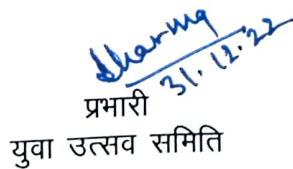 Sharma
31.12.22
प्रभारी
युवा उत्सव समिति